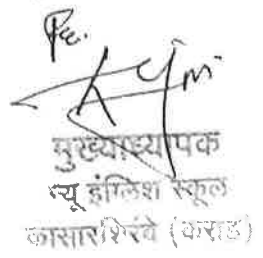 मुख्याध्यापक
न्यू इंग्लिश स्कूल
कासारशिरंबे (कराड)